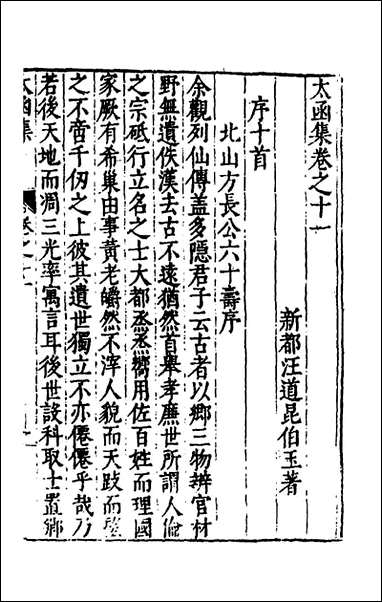 太函集卷之十一
新都汪道昆伯玉著
序十首
北山方長公六十壽序
余觀列仙傳盖多隱君子云古者以鄉三物辨官材
野無遺佚漢去古不遠猶然首舉孝廉世所謂人倫
之宗砥行立名之士大都烝烝嚮用佐百姓而理國
家厥有希巢由事黄老皭然不滓人貌而天跂而望
之不啻千仞之上彼其遺世獨立不亦僊僊乎哉乃
若後天地而凋三光率寓言耳後世設科取士置鄉
太函集